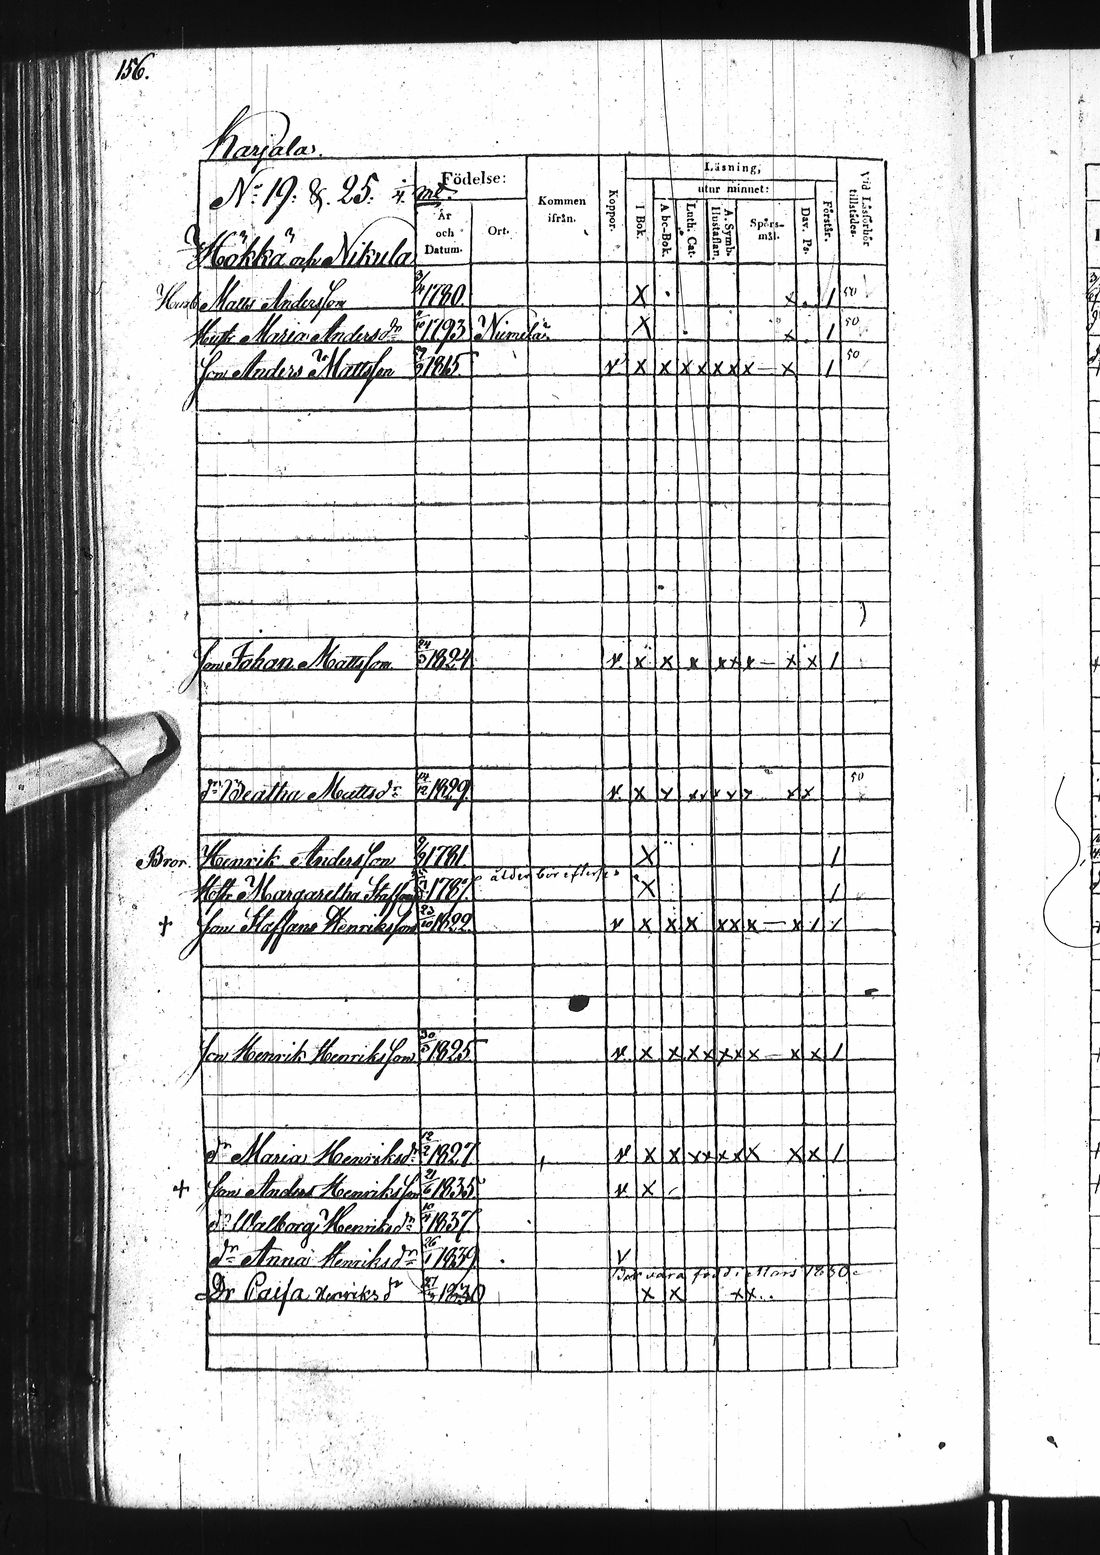 156.
Karjala.
No 19. & 25. 1/4 mt.
Hökkä och Nikula
Födelse:
År och Datum.
Ort.
Kommen ifrån.
Koppor.
Läsning,
utur minnet:
I Bok.
Abc-Bok.
Luth. Cat.
A. Symb. Hustaflan.
Spörs-mål.
Dav. Ps.
Förstår.
Vid Läsförhör tillstädes.
Matts Andersson 1780. X x . 1 50
Hustr Maria Andersdr 1793 X x 1 50
Son Anders Mattsson 1815 v x x x x x x x — x 1 50
Son Johan Mattsson 24/3 1824 v x x x x x x — x x 1
dr Beatha Mattsdr 14/12 1829. v x x x x x x x x x 50
Bror. Henrik Andersson 1781 X 1
Hstr Margaretha 1787. X 1
+ Son Staffans Henriksson 23/10 1822. v x x x x x x — x 1
Son Henrik Henriksson 30/3 1825 v x x x x x x x — x x 1
dr Maria Henriksdr 12/2 1827 v x x x x x x x x x 1
+ Son Anders Henriksson 21/6 1835 v x
dr Walborg Henriksdr 10/4 1837
dr Anna Henriksdr 26/1 1839. v
Bör vara född i Mars 1830.
Dr Caisa Henriksdr 1830 x x x x